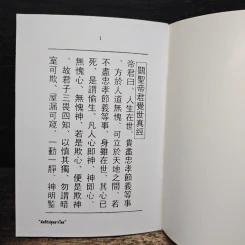 1
關聖帝君覺世真經
帝君曰、人生在世、貴盡忠孝節義等事
方於人道無愧、可立於天地之間、若
不盡忠孝節義等事、身雖在世、其心已
死、是謂偷生、凡人心即神、神即心、
無愧心、無愧神、若是欺心、便是欺神
、故君子三畏四知、以慎其獨、勿謂暗
室可欺、屋漏可愧、一動一靜、神明鑒